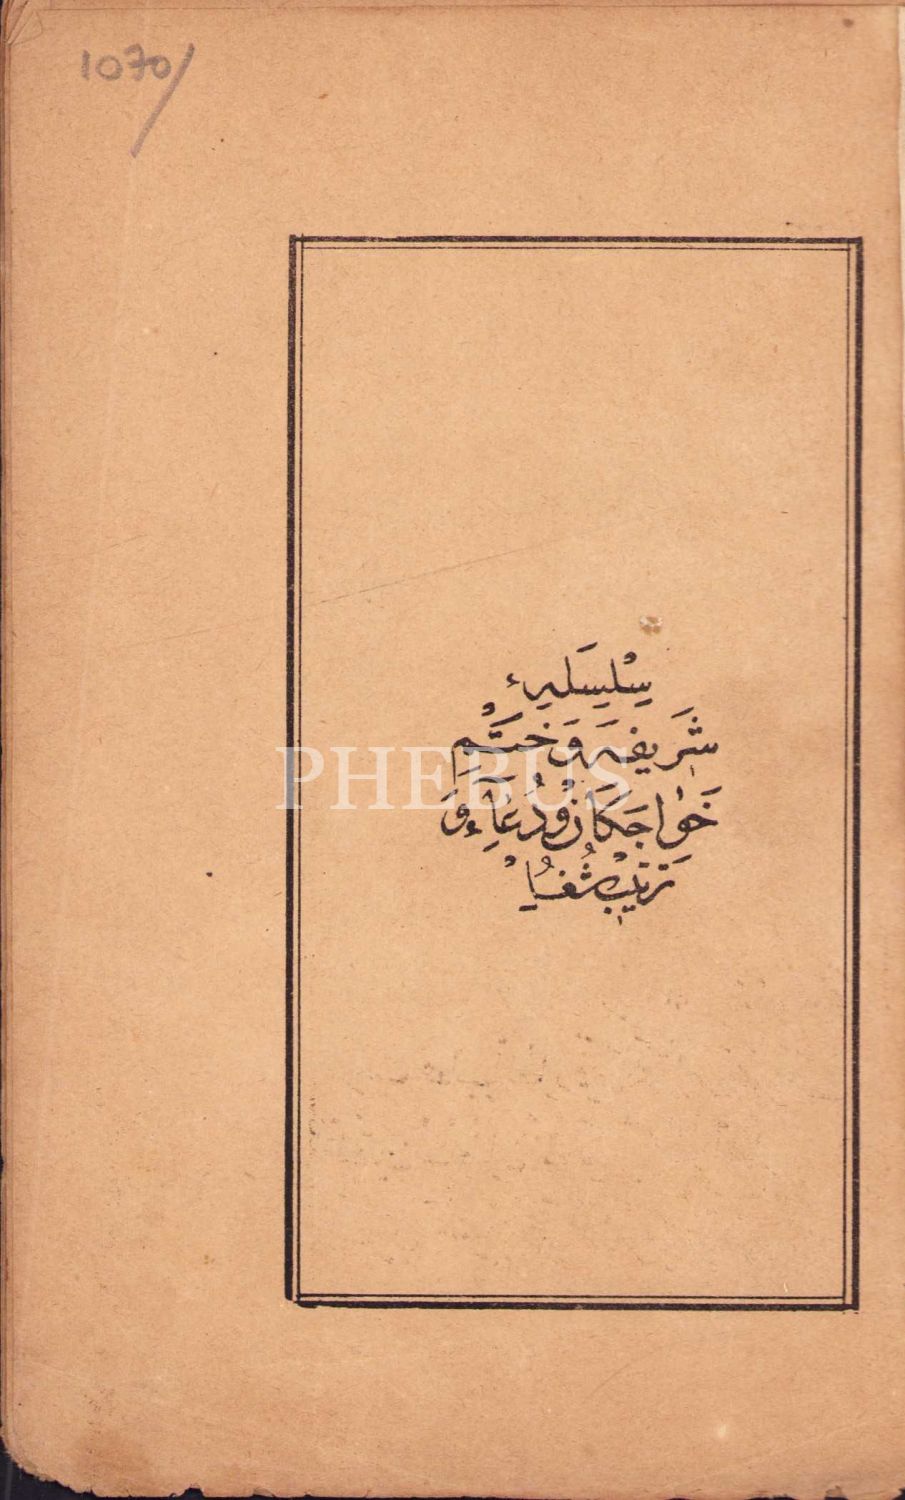 1070/
سِلْسِلَهِٔ
شَرِيفَه وَ خَتْمِ
خَوٰاجَكَانْ وَ دُعَاءِ وَ
تَرْتِيبْ
PHEBUS